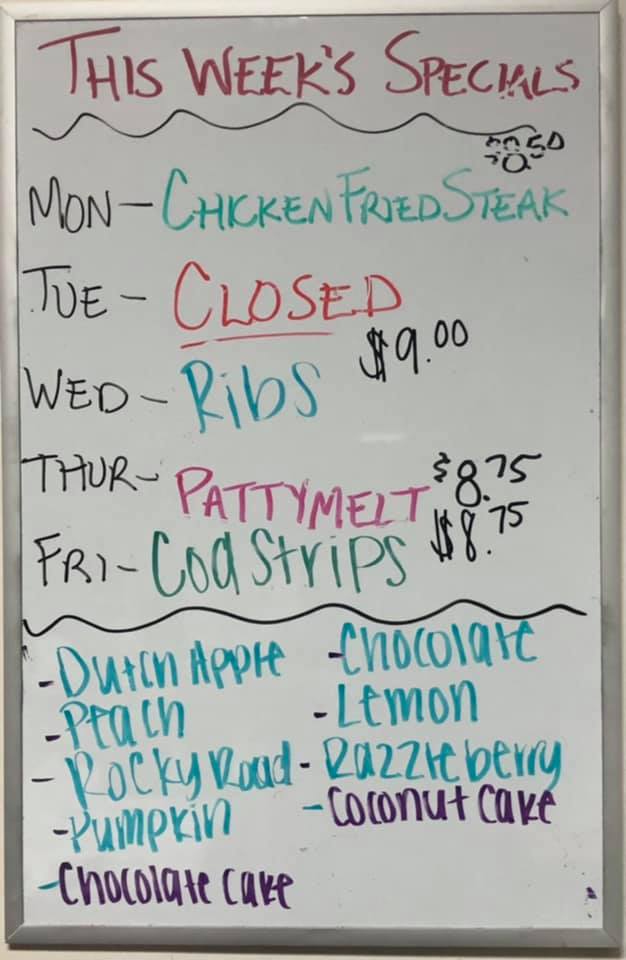 THIS WEEK'S SPECIALS
MON - CHICKEN FRIED STEAK
TUE - CLOSED
WED - Ribs $9.00
THUR - PATTYMELT $8.75
FRI - Cod Strips $8.75
- Dutch Apple
- Peach
- Rocky Road
- Pumpkin
- Chocolate Cake
- Chocolate
- Lemon
- Razzleberry
- Coconut Cake